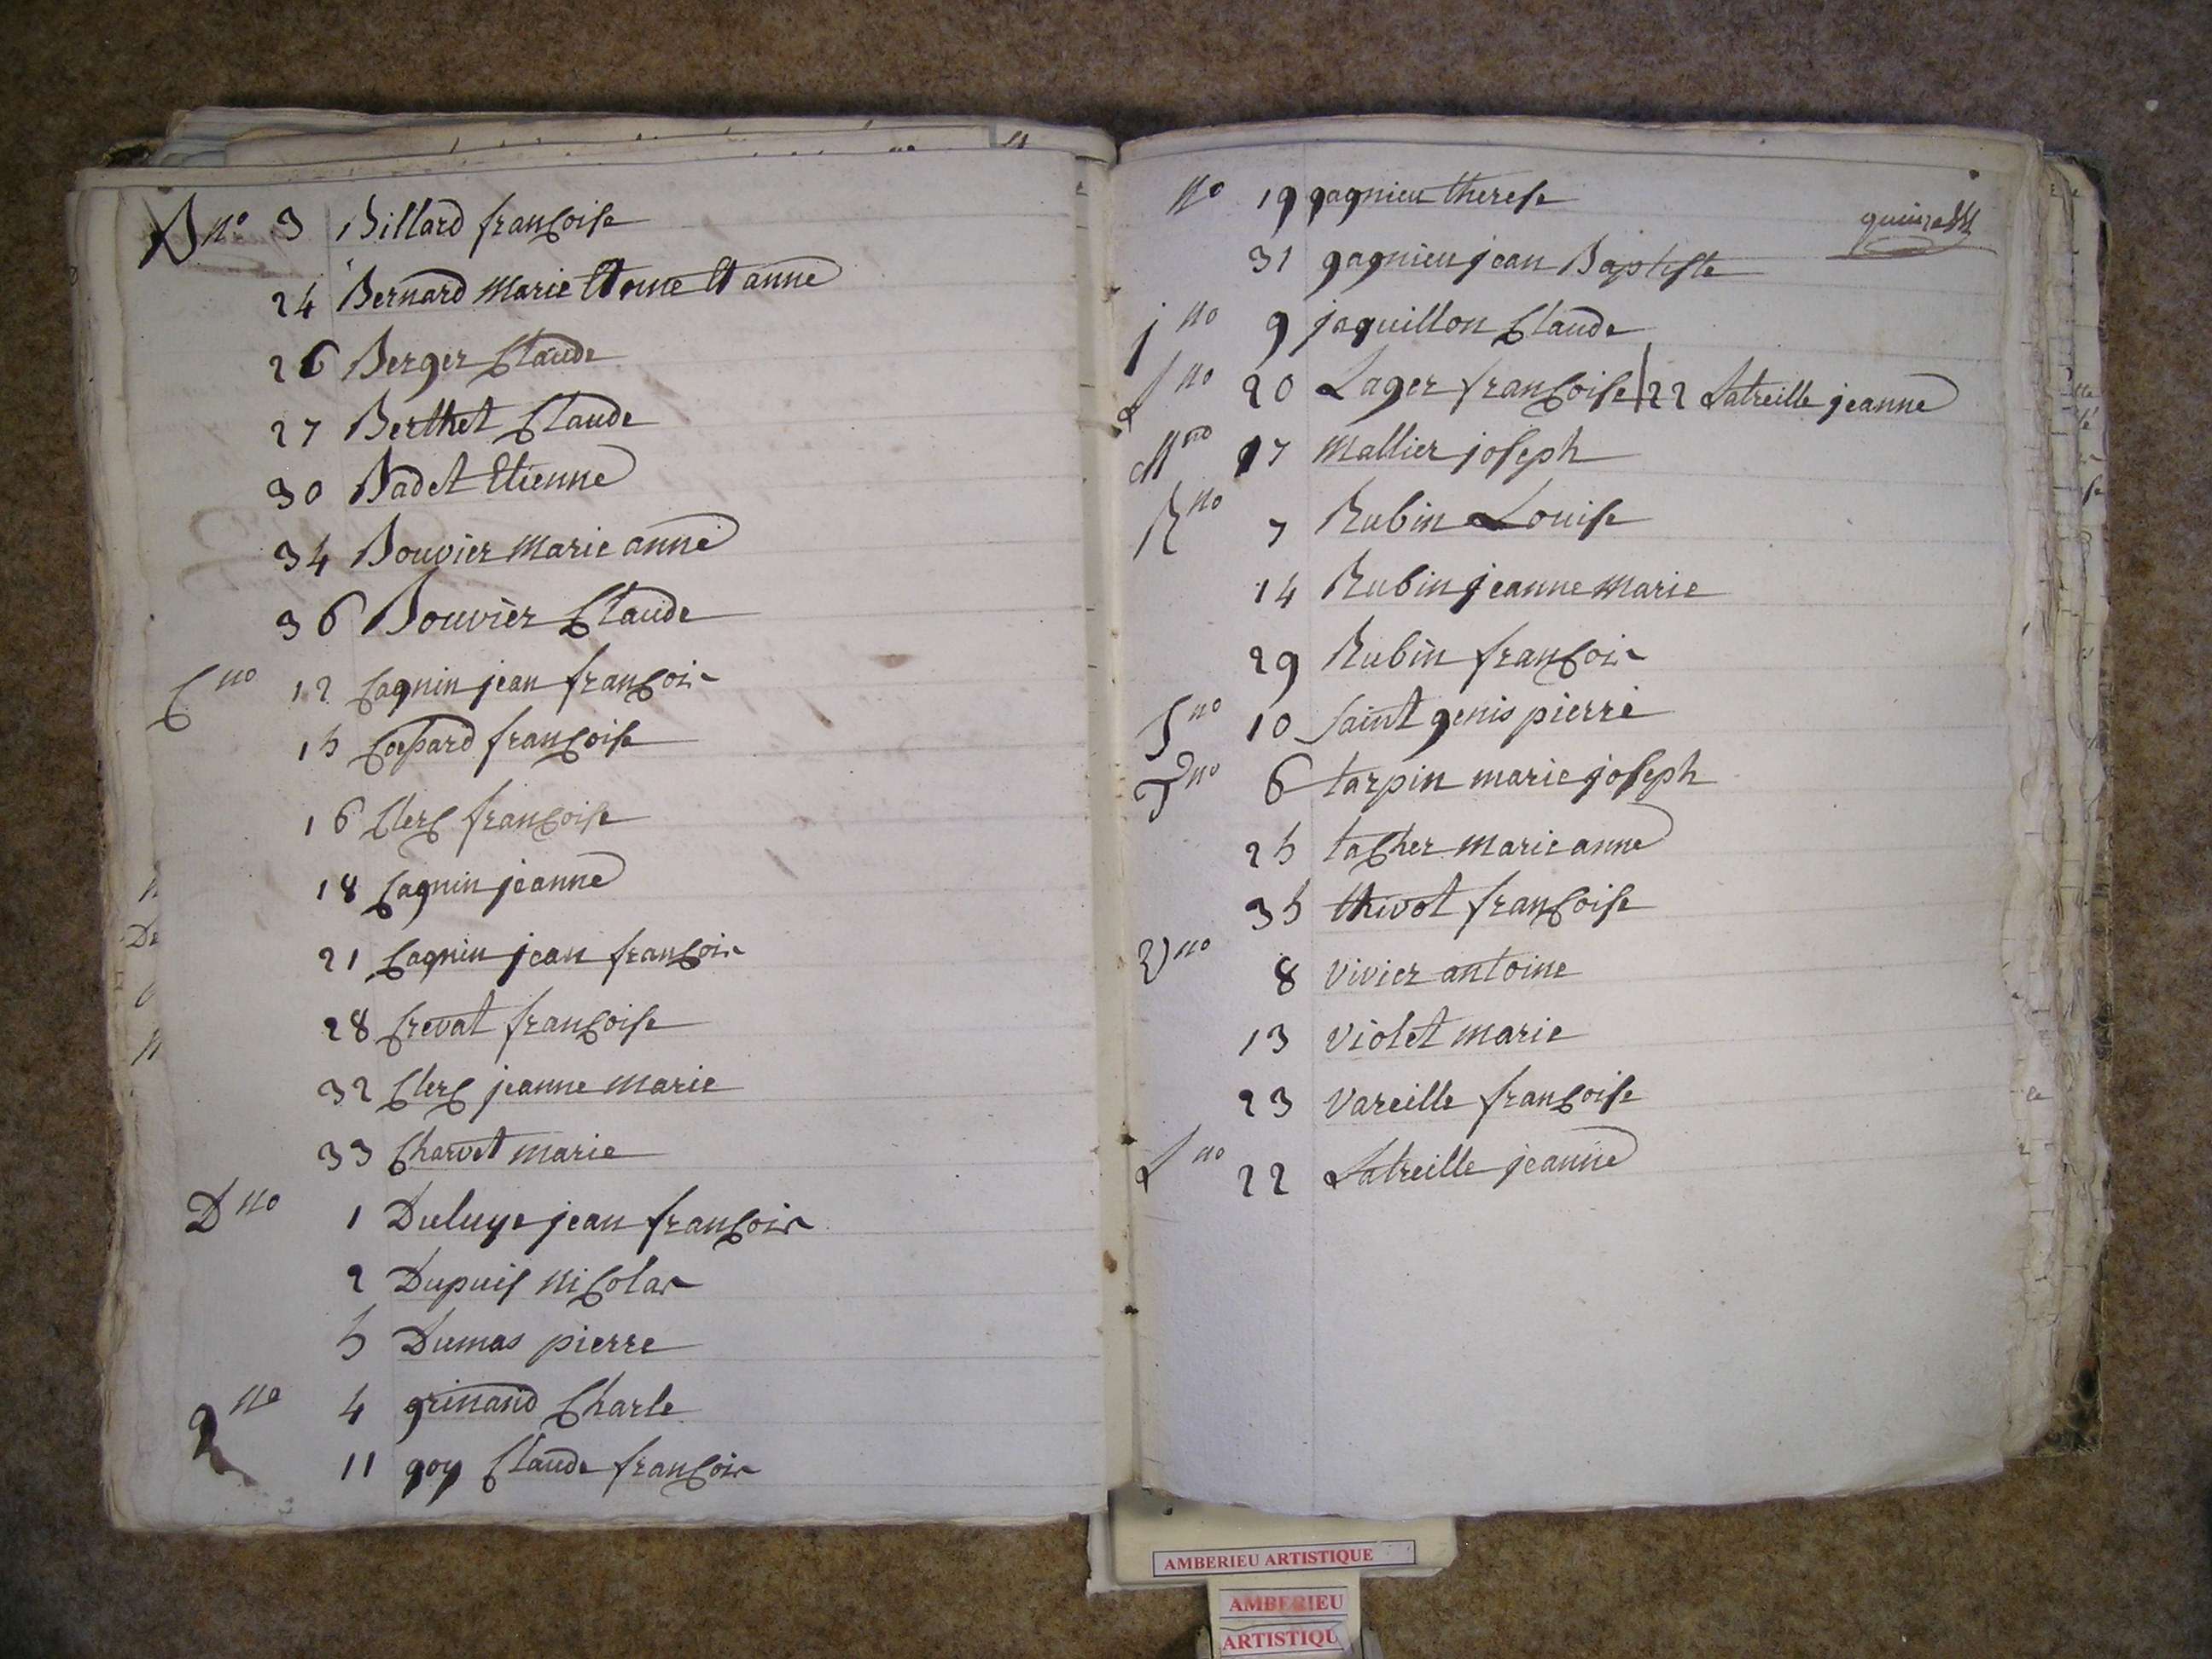 B no 3 Billard françoise
24 Bernard marie Et anne
26 Berger Claude
27 Berthet Claude
30 Badet Etienne
34 Bouvier marie anne
36 Bouvier Claude
C no 12 Cagnin jean françois
15 Cochard françoise
16 Clerc françoise
18 Cagnin jeanne
21 Cagnin jean françois
28 Crevat françoise
32 Clerc jeanne marie
33 Charvet marie
D no 1 Duluye jean françois
2 Dupuis nicolas
5 Dumas pierre
g no 4 grinand Charle
11 goy Claude françois
no 19 gagnieu therese
31 gagnieu jean Baptiste
j no 9 jaquillon Claude
L no 20 Lager françoise | 22 Latreille jeanne
M no 17 Mallier joseph
R no 7 Rubin Louise
14 Rubin jeanne marie
29 Rubin françois
S no 10 Saint genis pierre
T no 6 tarpin marie joseph
25 tacher marie anne
35 thevot françoise
V no 8 vivier antoine
13 violet marie
23 vareille françoise
L no 22 Latreille jeanne
AMBERIEU ARTISTIQUE
AMBERIEU
ARTISTIQU